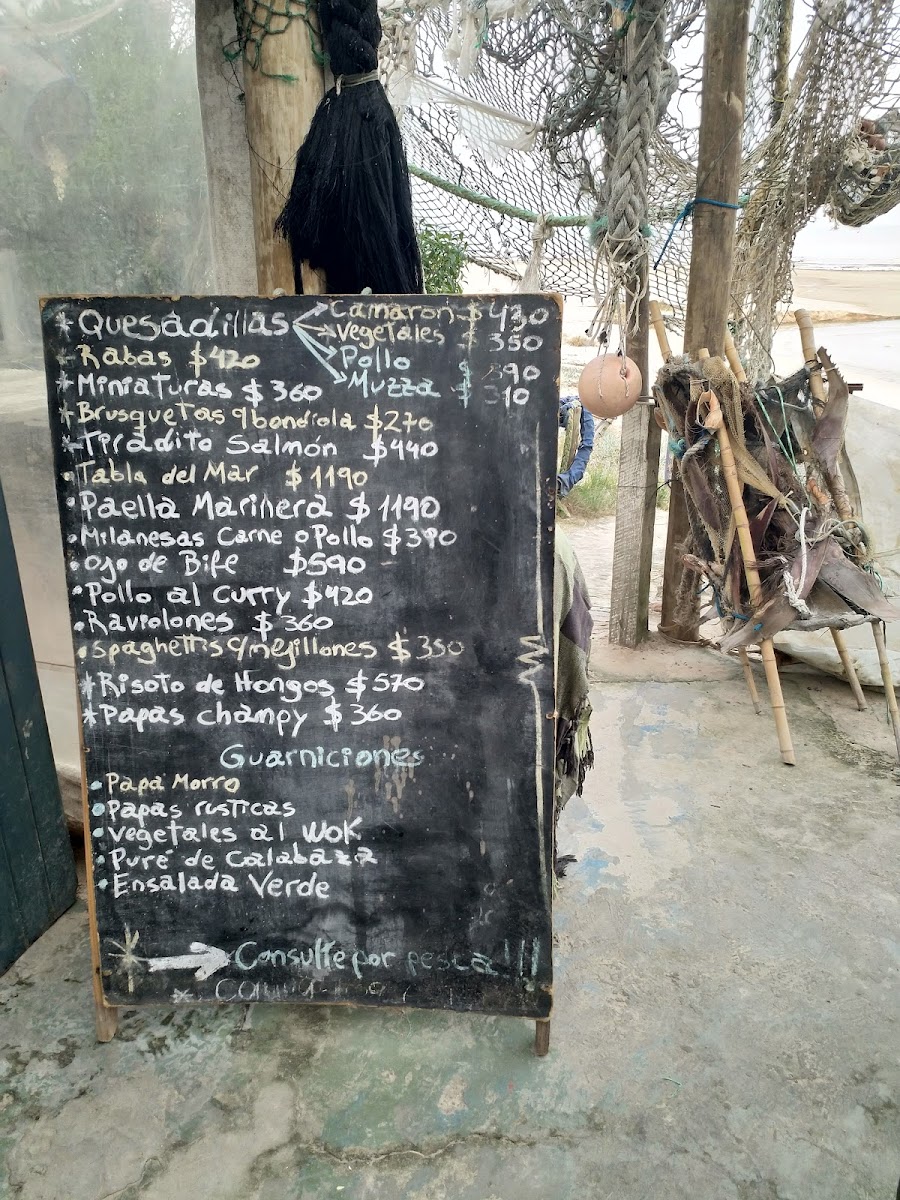 * Quesadillas Camaron $ 430
* Vegetales $ 350
Pollo $ 390
Muzza $ 310
* Rabas $420
* Miniaturas $ 360
* Brusquetas c/bondiola $270
* Tiradito Salmón $440
• Tabla del Mar $1190
• Paella Marinera $1190
• Milanesas Carne o Pollo $390
• Ojo de Bife $590
• Pollo al Curry $420
• Raviolones $360
• Spaghettis c/mejillones $350
* Risoto de Hongos $570
* Papas champy $360
Guarniciones
• Papa Morro
• Papas rusticas
• Vegetales al WOK
• Puré de Calabaza
• Ensalada Verde
* → Consulte por pesca!!!